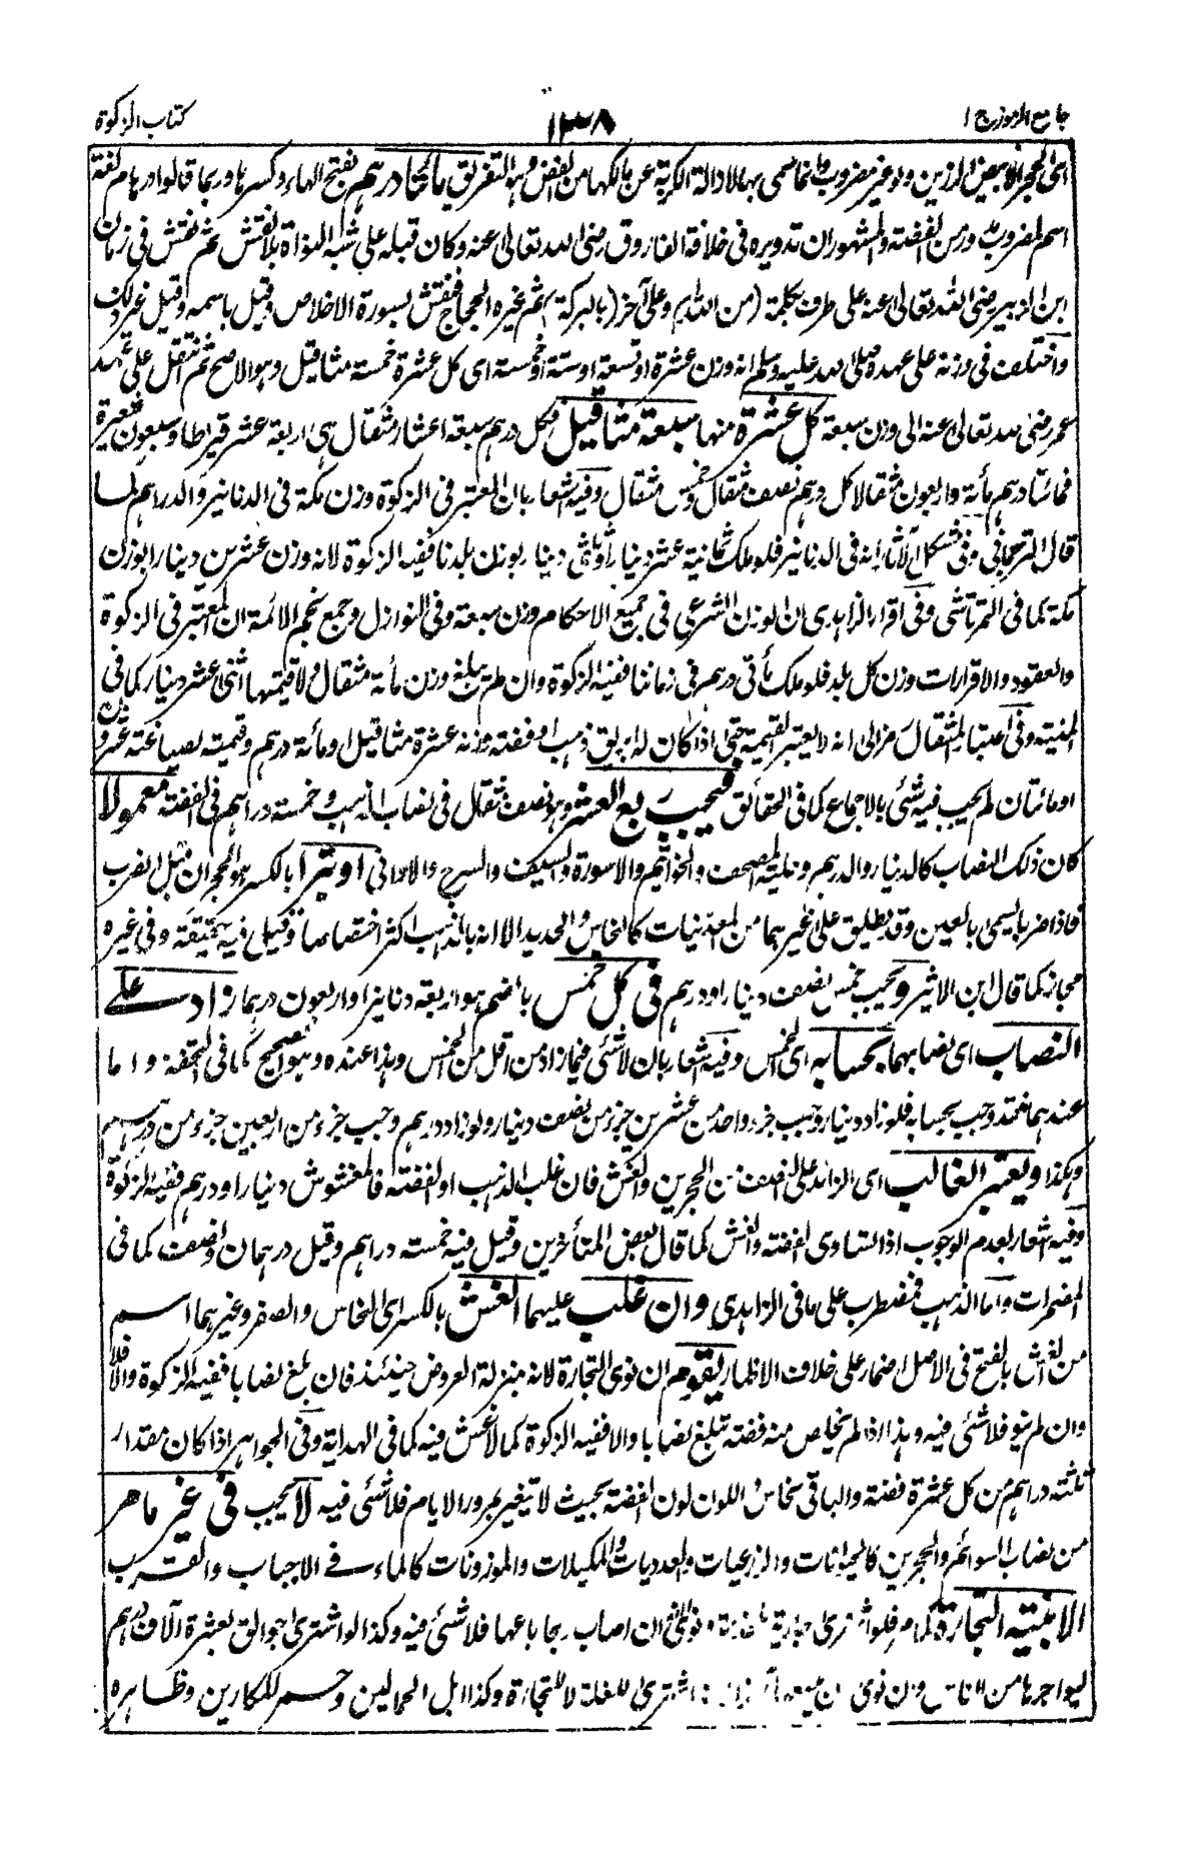 جامع الرموز ج ١
١٣٨
كتاب الزكوة
اى الحجر الابيض الرزين ولو غير مضروب وانما سمى بها لازالة الكربة عن مالكها من الفض وهو التفريق مائتا درهم بفتح الهاء وكسرها وربما قالوا درهام لغة
اسم لمضروب مدور من الفضة والمشهور ان تدويره فى خلافة الفاروق رضى الله تعالى عنه وكان قبله على شبه النواة بلا نقش ثم نقش فى زمان
ابن الزبير رضى الله تعالى عنه على طرف بكلمة (من الله) وعلى آخر (بالبركة) ثم غيره الحجاج فنقش بسورة الاخلاص وقيل باسمه وقيل غير ذلك
واختلف فى وزنه على عهده صلى الله عليه وسلم انه وزن عشرة او تسعة او ستة او خمسة اى كل عشرة خمسة مثاقيل وهو الاصح ثم انتقل على عهد
عمر رضى الله تعالى عنه الى وزن سبعة كل عشرة منها سبعة مثاقيل فكل درهم سبعة اعشار مثقال هى اربعة عشر قيراطا وسبعون شعيرة
فمائتا درهم مائة واربعون مثقالا كل درهم نصف مثقال وخمس مثقال وفيه اشعار بان المعتبر فى الزكوة وزن مكة فى الدنانير والدراهم لما
قال الترجمانى وفى مشكل الآثار انه فى الدنانير فلو ملك ثمانية عشر دينارا وثلثى دينار بوزن بلدنا ففيه الزكوة لانه وزن عشرين دينارا بوزن
مكة كما فى التمرتاشى وفى اقرار الزاهدى ان الوزن الشرعى فى جميع الاحكام وزن سبعة وفى النوازل وجمع نجم الائمة ان المعتبر فى الزكوة
والعقود والاقرارات وزن كل بلد فلو ملك مأتى درهم فى زماننا ففيه الزكوة وان لم يبلغ وزن مأة مثقال ولا قيمتها اثنى عشر دينارا كما فى
المنية وفى اعتبار المثقال رمز الى انه لا يعتبر القيمة حتى اذا كان له ابريق ذهب او فضة وزنه عشرة مثاقيل او مائة درهم وقيمته لصياغته عشرون
او مائتان لم يجب فيه شئى بالاجماع كما فى الحقائق فيجب ربع العشر وهو نصف مثقال فى نصاب الذهب وخمسة دراهم فى الفضة معمولا
كان ذلك النصاب كالدينار والدرهم وحلية المصحف والخواتيم والاسورة والسيف والسرج والاوانى او تبرا بالكسر هو الحجران قبل الضرب
فاذا ضربا يسمى بالعين وقد يطلق على غيرهما من المعدنيات كالنحاس والحديد الا انه بالذهب اكثر اختصاصا وقيل فيه حقيقة وفى غيره
مجاز كما قال ابن الاثير ويجب خمس نصف دينار او درهم فى كل خمس بالضم هو اربعة دنانير او اربعون درهما زاد على
النصاب اى نصابهما بحسابه اى الخمس وفيه اشعار بان لا شئى فيما زاد من اقل من الخمس وهذا عنده وهو الصحيح كما فى التحفة واما
عندهما فقد وجب بحسابه فلو زاد دينار وجب جزء واحد من عشرين جزء من نصف دينار ولو زاد درهم وجب جزء من اربعين جزء من درهم
وهكذا ويعتبر الغالب اى الزائد على النصف من الحجرين والغش فان غلب الذهب او الفضة فالمغشوش دينار او درهم ففيه الزكوة
وفيه اشعار بعدم الوجوب اذا تساوى الفضة والغش كما قال بعض المتأخرين وقيل فيه خمسة دراهم وقيل درهمان ونصف كما فى
المضمرات واما الذهب فمضطرب على ما فى الزاهدى وان غلب عليهما الغش بالكسر اى النحاس والصفر وغيرهما اسم
من الغش بالفتح فى الاصل اضمار على خلاف الاظهار يقوم ان نوى التجارة لانه بمنزلة العروض حينئذ فان بلغ نصابا ففيه الزكوة والا فلا
وان لم ينو فلا شئى فيه وهذا اذا لم يخلص منه فضة تبلغ نصابا والا ففيه الزكوة كما لا غش فيه كما فى الهداية وفى الجواهر اذا كان مقدار
ثلثة دراهم من كل عشرة فضة والباقى نحاس اللون لون الفضة بحيث لا يتغير بمرور الايام فلا شئى فيه لا يجب فى غير ما مر
من نصاب السوائم والحجرين كالحيوانات والزرعيات والعدديات والمكيلات والموزونات كالماء فى الاجباب والقرب
الا بنية التجارة كما مر فلو اشترى جارية ونوى ان اصاب ربحا باعها فلا شئى فيه وكذا لو اشترى جوالق بعشرة آلاف درهم
ليواجرها من الناس وان نوى ان اشترى للغلة لا للتجارة وكذا ابل الحمالين وحمر للمكارين وظاهره